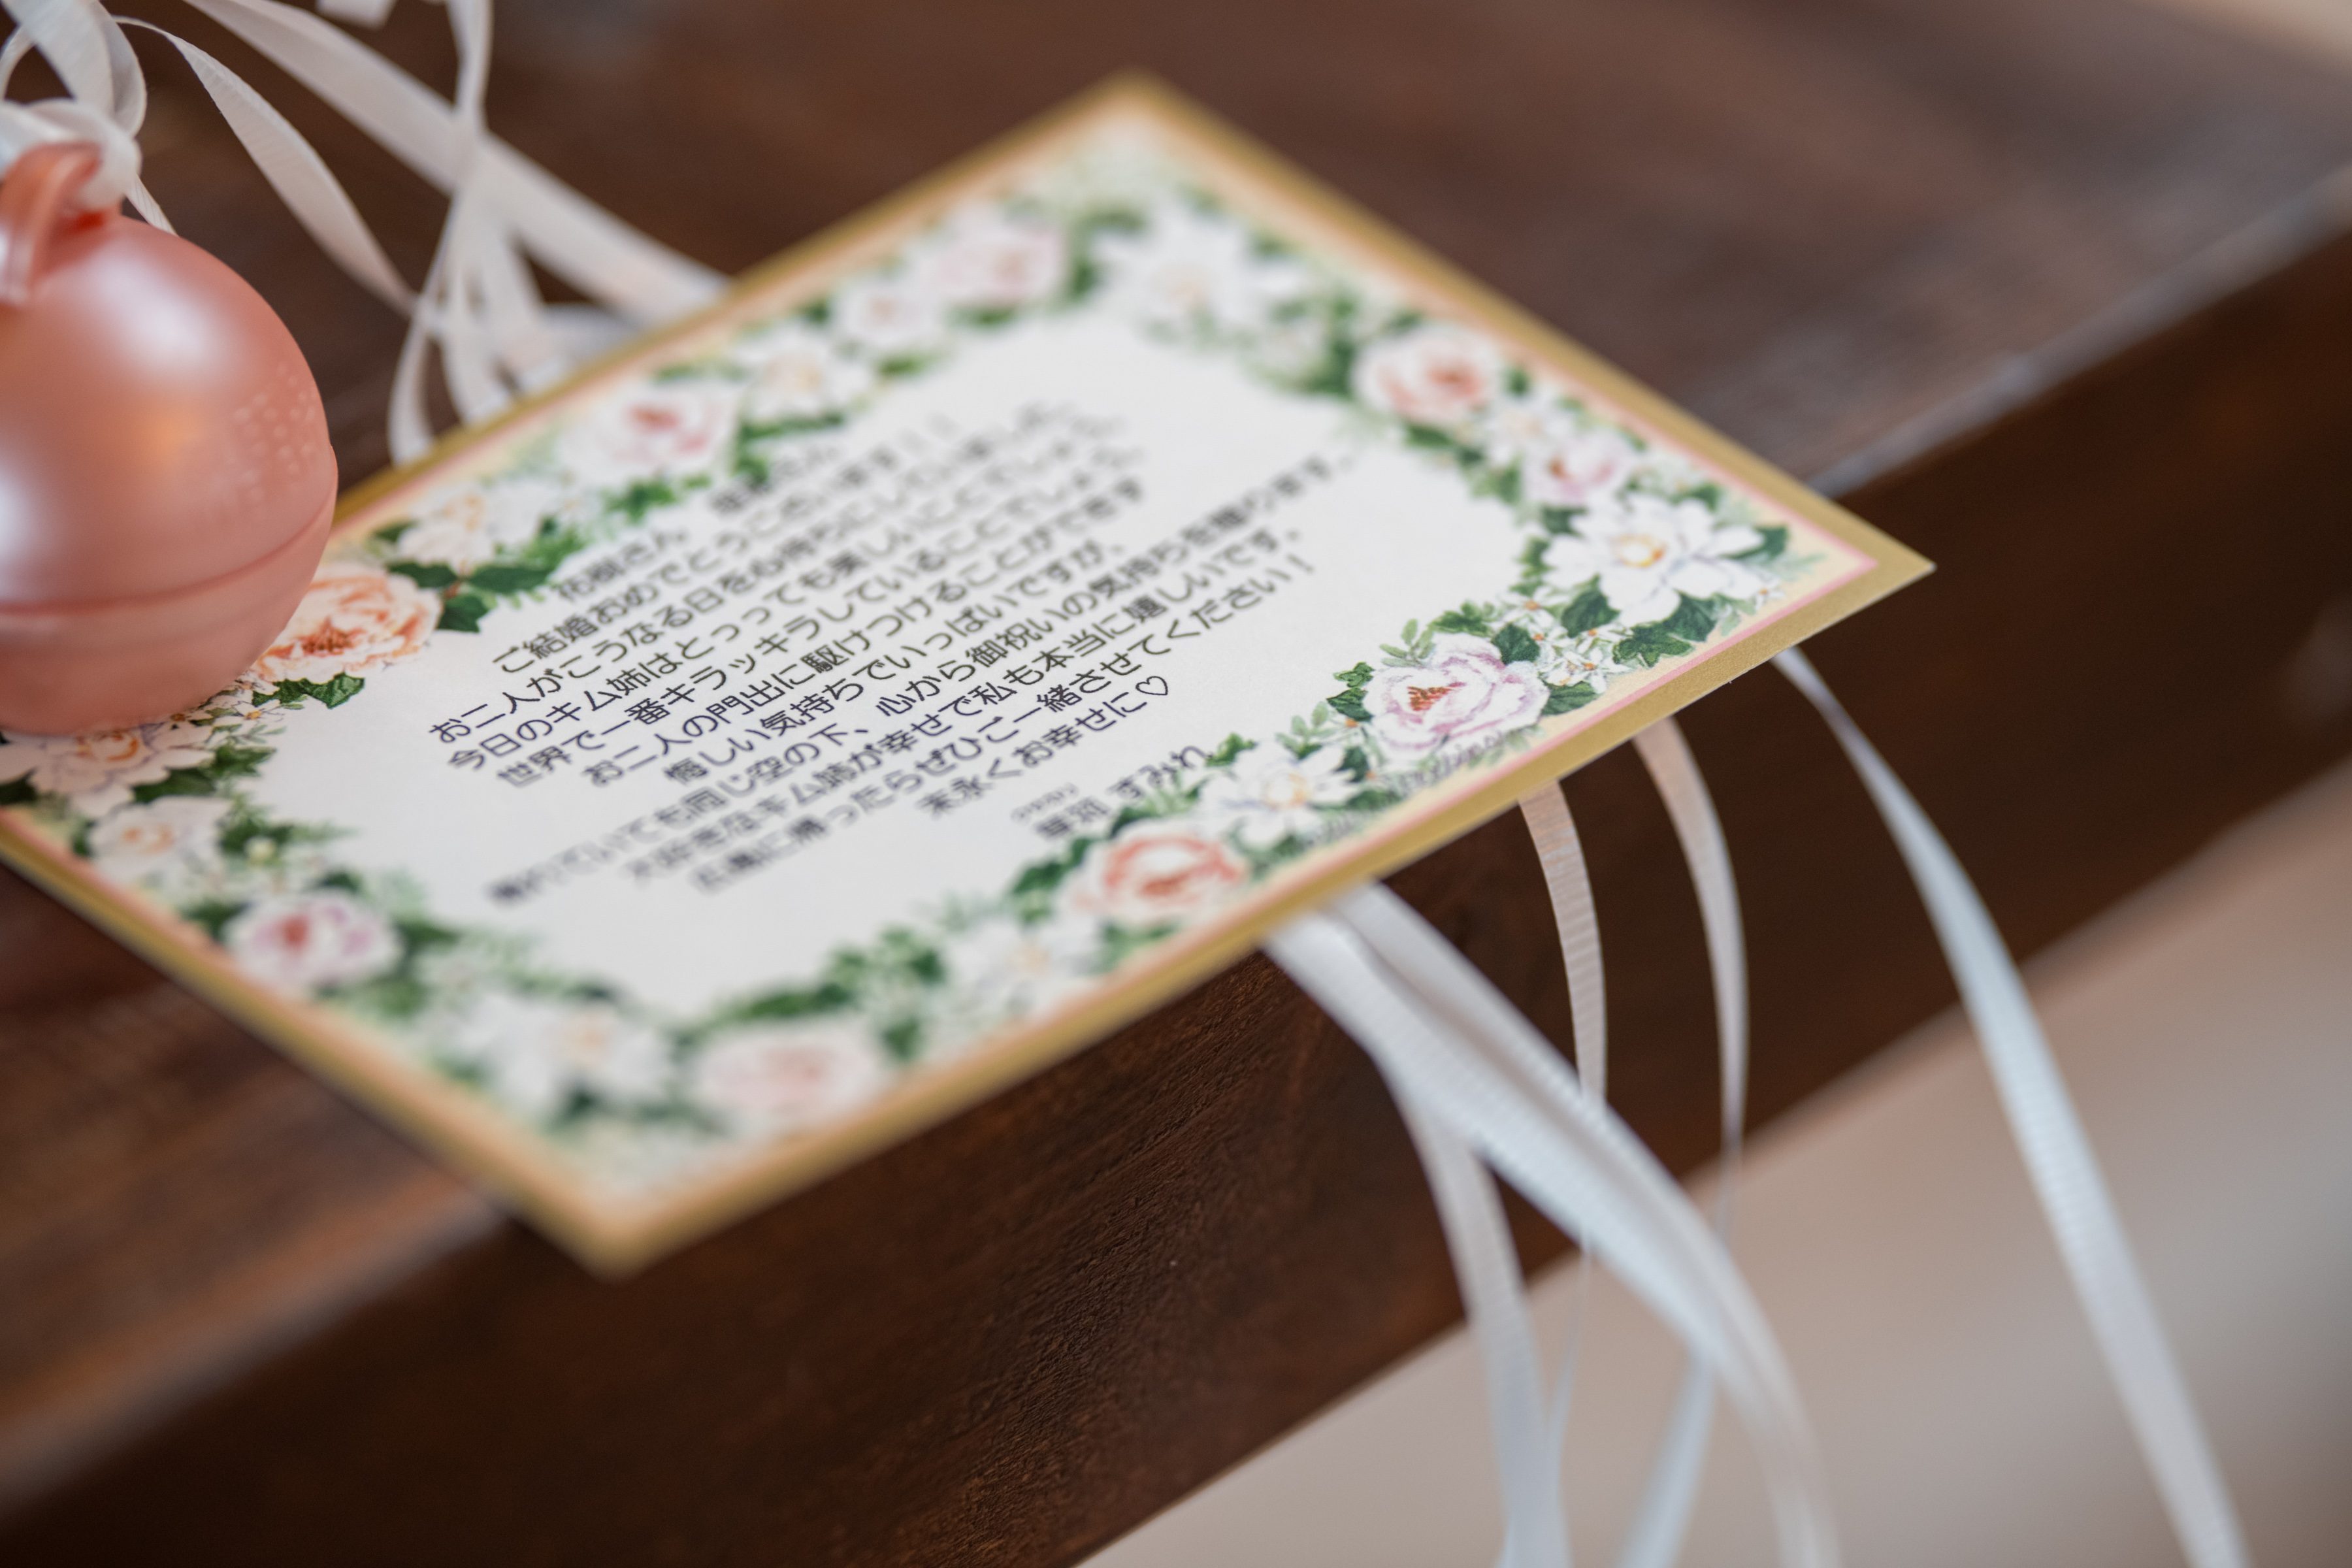 佑樹さん
ご結婚おめでとうございます！！
お二人がこうなる日を心待ちにしていました。
今日のキム姉はとっっても楽しいことでしょう。
世界で一番キラッキラしていることでしょう。
お二人の門出に駆けつけることができず
悔しい気持ちでいっぱいですが、
離れていても同じ空の下、心から御祝いの気持ちを贈ります。
大好きなキム姉が幸せで私も本当に嬉しいです。
広島に帰ったらぜひご一緒させてください！
末永くお幸せに♡
すみれ